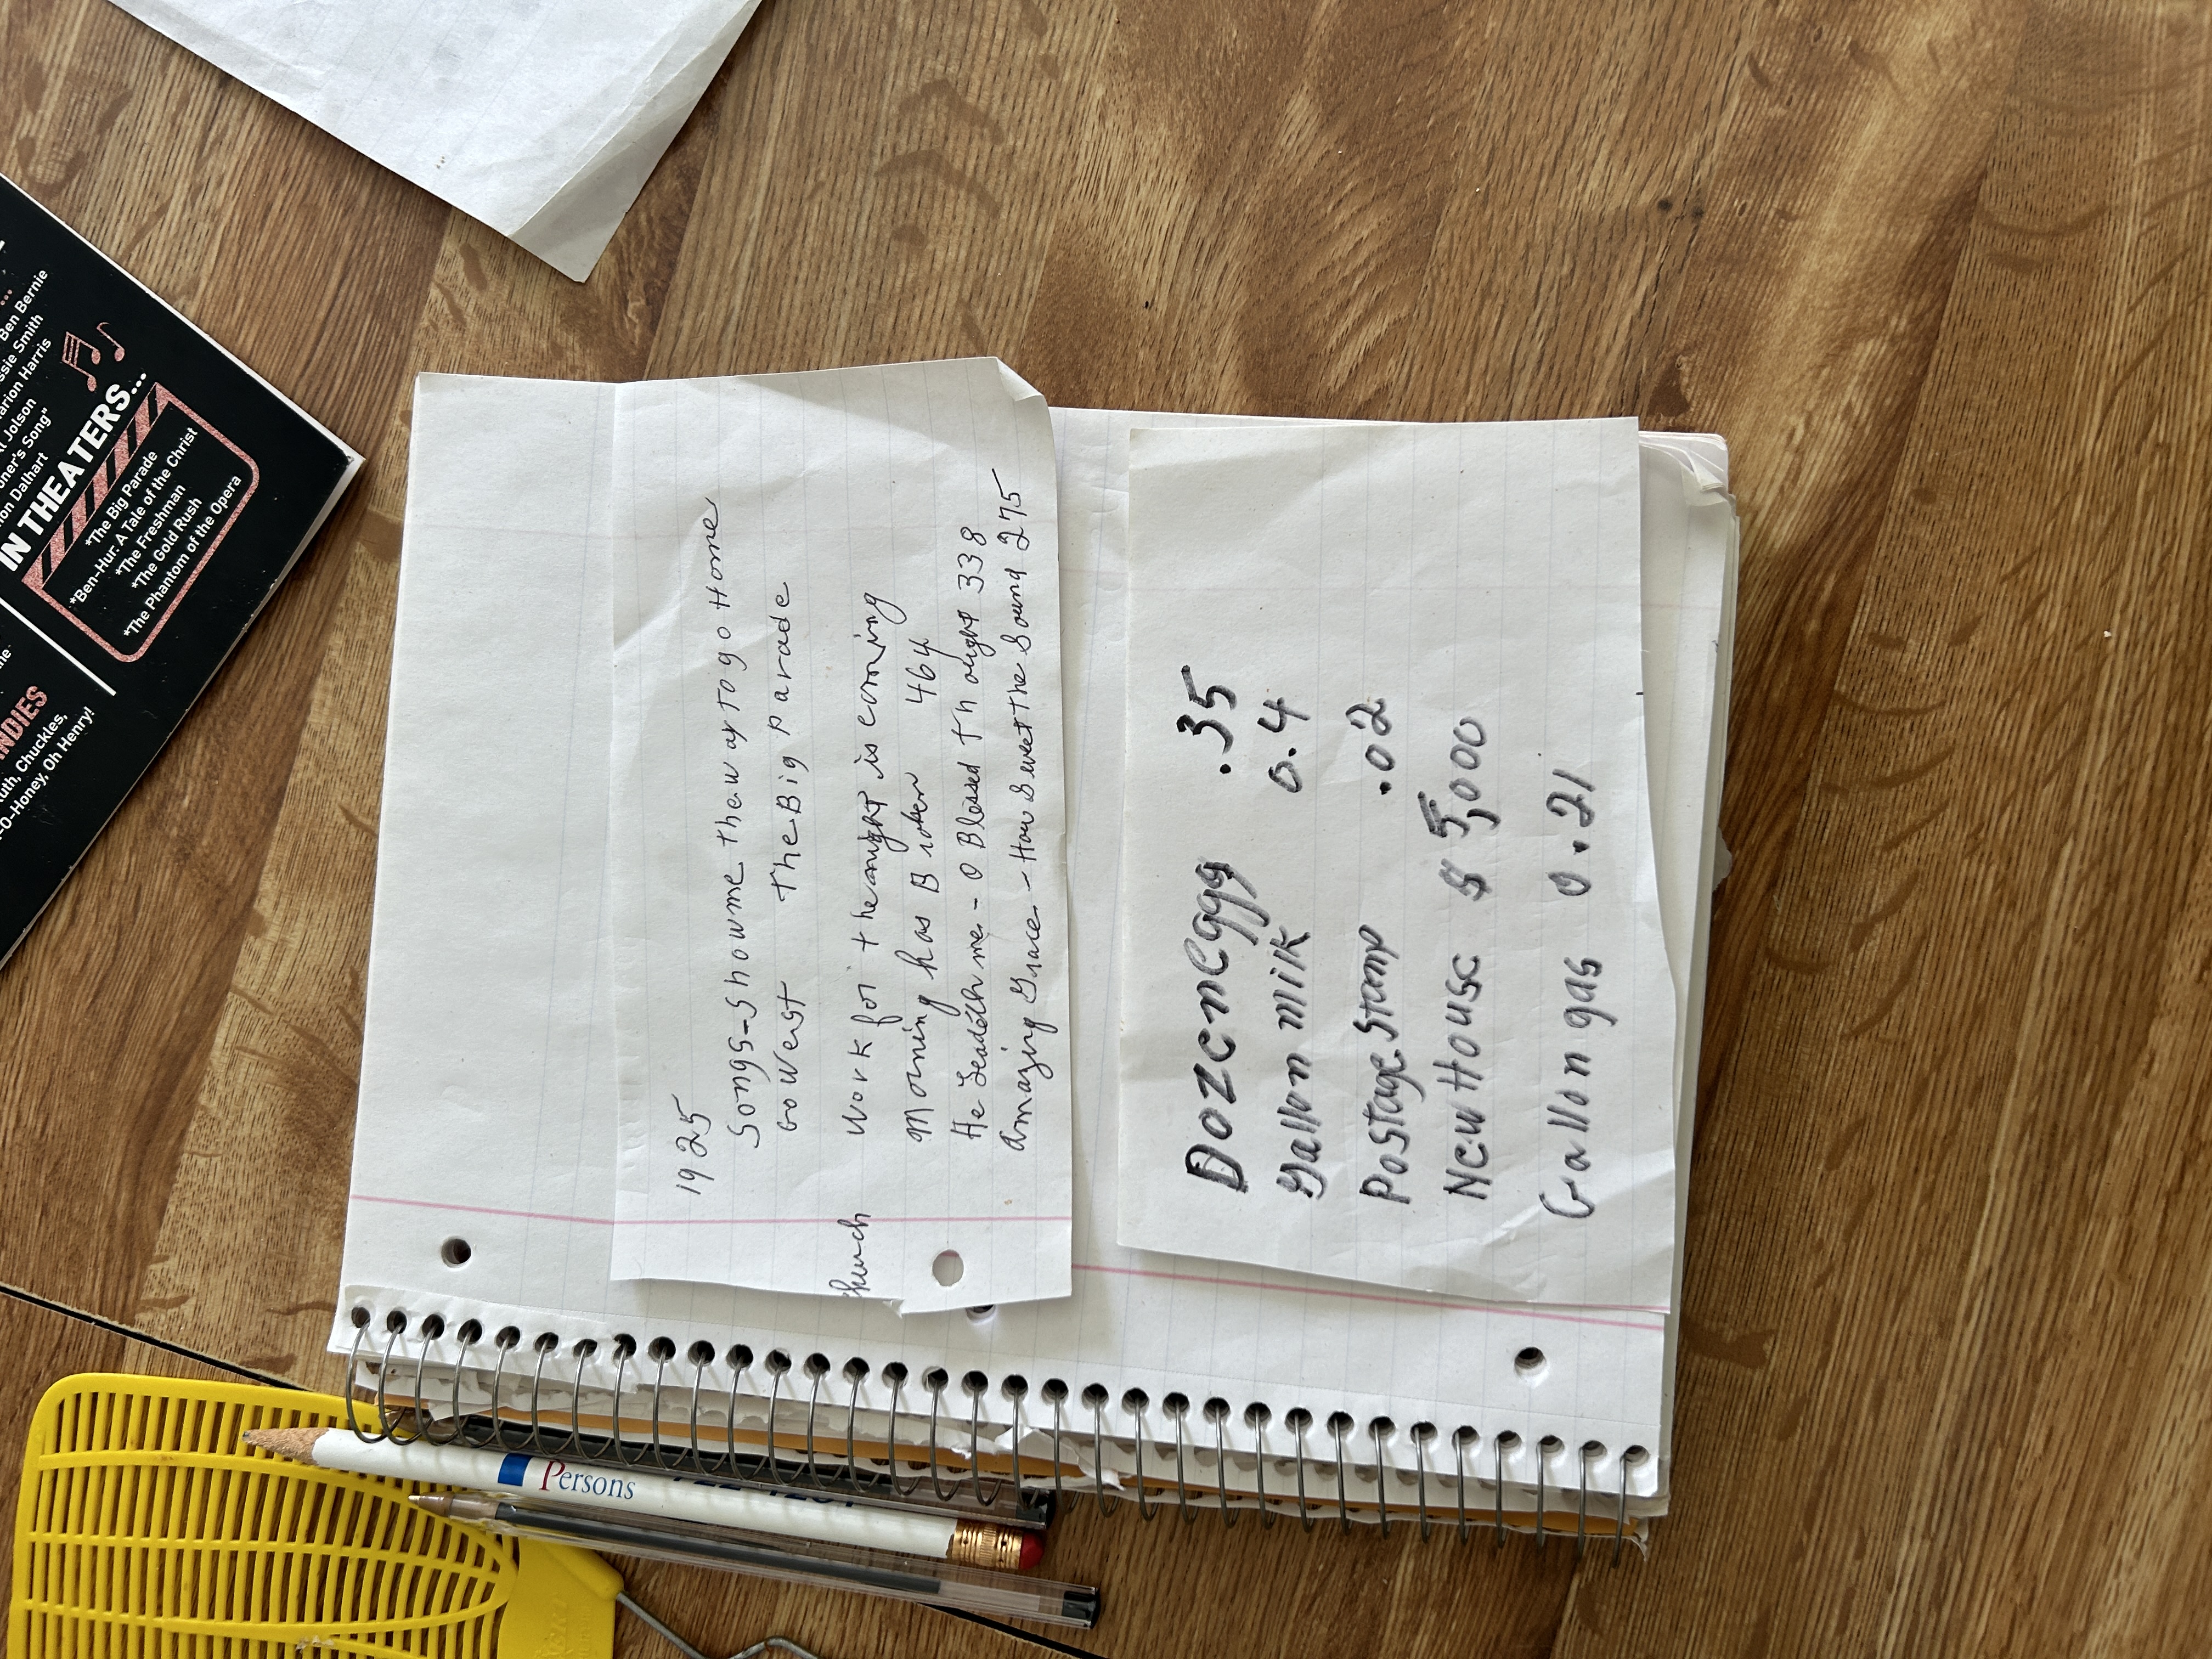 Ben Bernie
Smith
Marion Harris
Jolson
Song"
Dalhart
IN THEATERS...
*The Big Parade
*Ben-Hur: A Tale of the Christ
*The Freshman
*The Gold Rush
*The Phantom of the Opera
Chuckles,
Oh Henry!
1925
Songs-Show me the way to go Home
Go West The Big parade
Work for the night is coming
Morning has Broken 464
He Leadeth me - O Blessed Thought 338
Amazing Grace - How Sweet The Sound 275
Dozen eggs .35
Gallon milk 0.4
Postage stamp .02
New House $5,000
Gallon gas 0.21
Persons